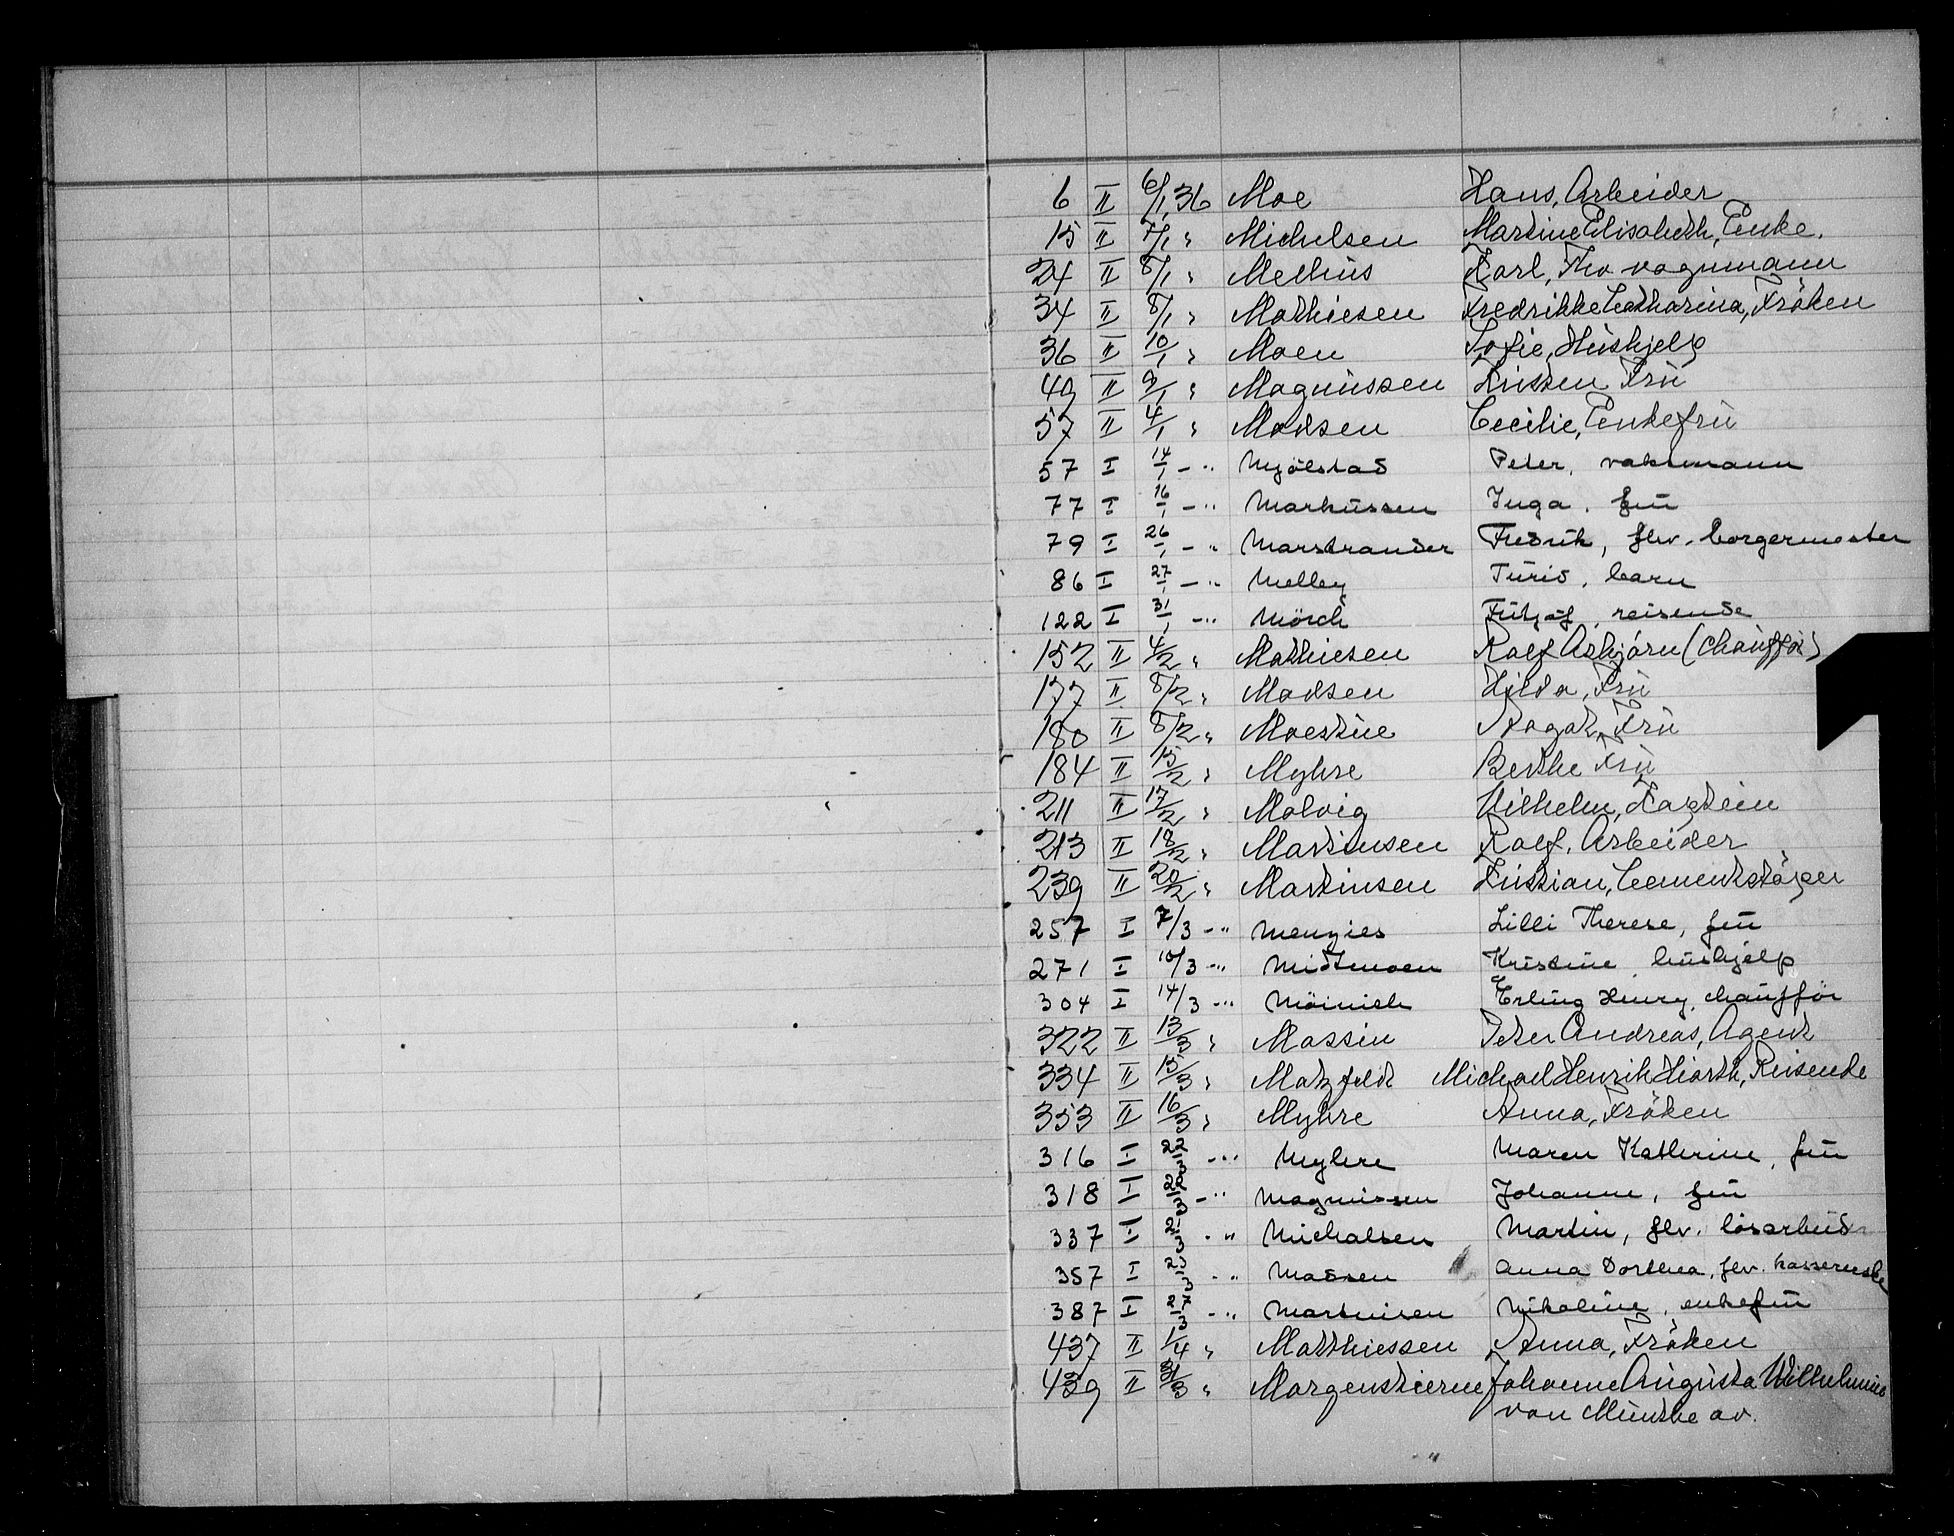 6 II 6/1 36 Moe Hans, Arbeider
15 II 7/1 " Michelsen Martine Elisabeth, Enke.
24 II 8/1 " Melhus Karl, Fhv vognmann
34 II 8/1 " Mathiesen Fredrikke Catharina, Fröken
36 II 10/1 " Moen Sofie, Hushjelp
49 II 9/1 " Magnussen Kristen Fru
57 II 4/1 " Madsen Cecilie, Enkefru
57 I 14/1 - " Mjölstad Peter, vaktmann
77 I 16/1 - " Markussen Inga, fru
79 I 26/1 - " Marstrander Fredrik, fhv. borgermester
86 I 27/1 - " Melby Turid, barn
122 I 31/1 - " Mörch Fritjof, reisende
152 II 4/2 " Mathiesen Rolf Asbjörn (Chaufför)
177 II 8/2 " Madsen Hilda, Fru
180 II 8/2 " Moestue Aagot, Fru
184 II 15/2 " Myhre Berthe Fru
211 II 17/2 " Molvig Wilhelm, Kaptein
213 II 18/2 " Martinsen Rolf, Arbeider
239 II 20/2 " Martinsen Kristian, Cementstöper
257 I 7/3 - " Menzies Lilli Therese, fru
271 I 10/3 - " Midtmoen Kristine, hushjelp
304 I 14/3 - " Möinich Erling Henry, chaufför
322 II 13/3 " Massin Peter Andreas, Agent
334 II 15/3 " Matzfeldt Michael Henrik Hiorth, Reisende
353 II 16/3 " Myhre Anna, Fröken
316 I 22/3 - " Myhre Maren Kathrine, fru
318 I - " Magnussen Johanne, fru
337 I - " Michalsen Martin, fhv. lösarbeid
357 I - " Madsen Anna Dorthea, fhv.
387 I - " Martinsen Nikoline, enkefru
437 II 1/4 " Matthiessen Anna, Fröken
439 II 31/3 " Morgenstierne Johanne Augusta Wilhelmine
von Munthe av.